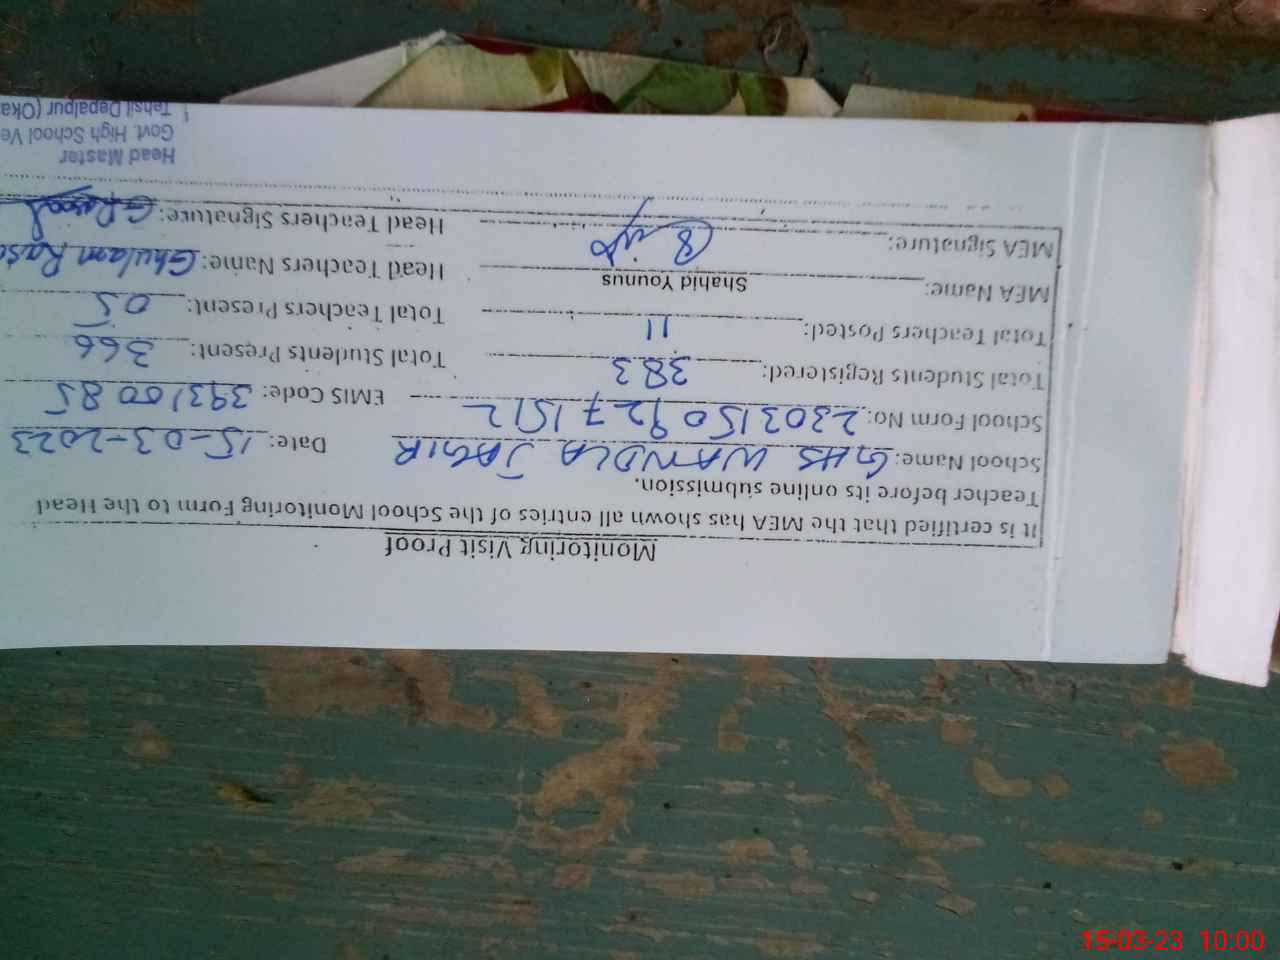 Monitoring Visit Proof
It is certified that the MEA has shown all entries of the School Monitoring Form to the Head
Teacher before its online submission.
School Name: GHS WANDLA JAGIR Date: 15-03-2023
School Form No: 23031509271512 EMIS Code: 39310085
Total Students Registered: 383 Total Students Present: 366
Total Teachers Posted: 11 Total Teachers Present: 05
MEA Name: Shahid Younus Head Teachers Name: Ghulam Raso
MEA Signature: Head Teachers Signature: GRasool
Head Master
Govt. High School Ve
Tehsil Depalpur (Oka
15-03-23 10:00